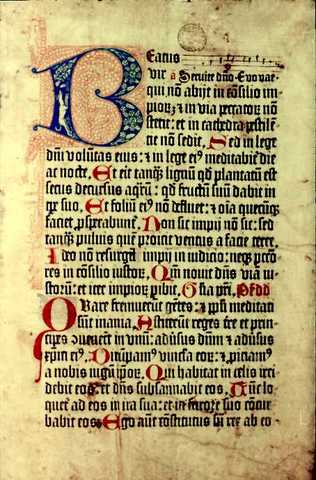 Beatus
vir ã Seruite dño. Evovae
qui nõ abijt in cõsilio im
pioꝝ ⁊ in via pctõꝝ nõ
stetit: et in cathedra pestilẽ
tie nõ sedit. Sed in lege
dñi volũtas eius: ⁊ in lege ei⁹ meditabit' die
ac nocte. Et erit tanqꝫ lignũ qd' plantatũ est
secus decursus aqrũ: qd' fructũ suũ dabit in
tpe suo. Et foliũ ei⁹ nõ defluet: ⁊ oĩa quecũqꝫ
faciet ꝓsperabunt'. Non sic impij nõ sic: sed
tanqꝫ puluis quẽ proicit ventus a facie terre.
Ideo nõ resurgũt impij in iudicio: neqꝫ pctõ
res in cõsilio iustoꝝ. Qm̃ nouit dñs viã iu
storũ: et iter impioꝝ ꝑibit. Gl'ia pr̃i. Ps dd
Quare fremuerũt gẽtes: ⁊ ppl'i meditati
sũt inania. Astiterũt reges tre et prin
cipes cõuenerũt in vnũ: adũsus dñm ⁊ adũsus
xpm̃ ei⁹. Dirũpam⁹ vincla eoꝝ: ⁊ ꝓiciam⁹
a nobis iugũ ipoꝝ. Qui habitat in celis irri
debit eos: et dñs subsannabit eos. Tũc lo
quet' ad eos in ira sua: et in furore suo cõtur
babit eos. Ego aũt cõstitutus sũ rex ab eo